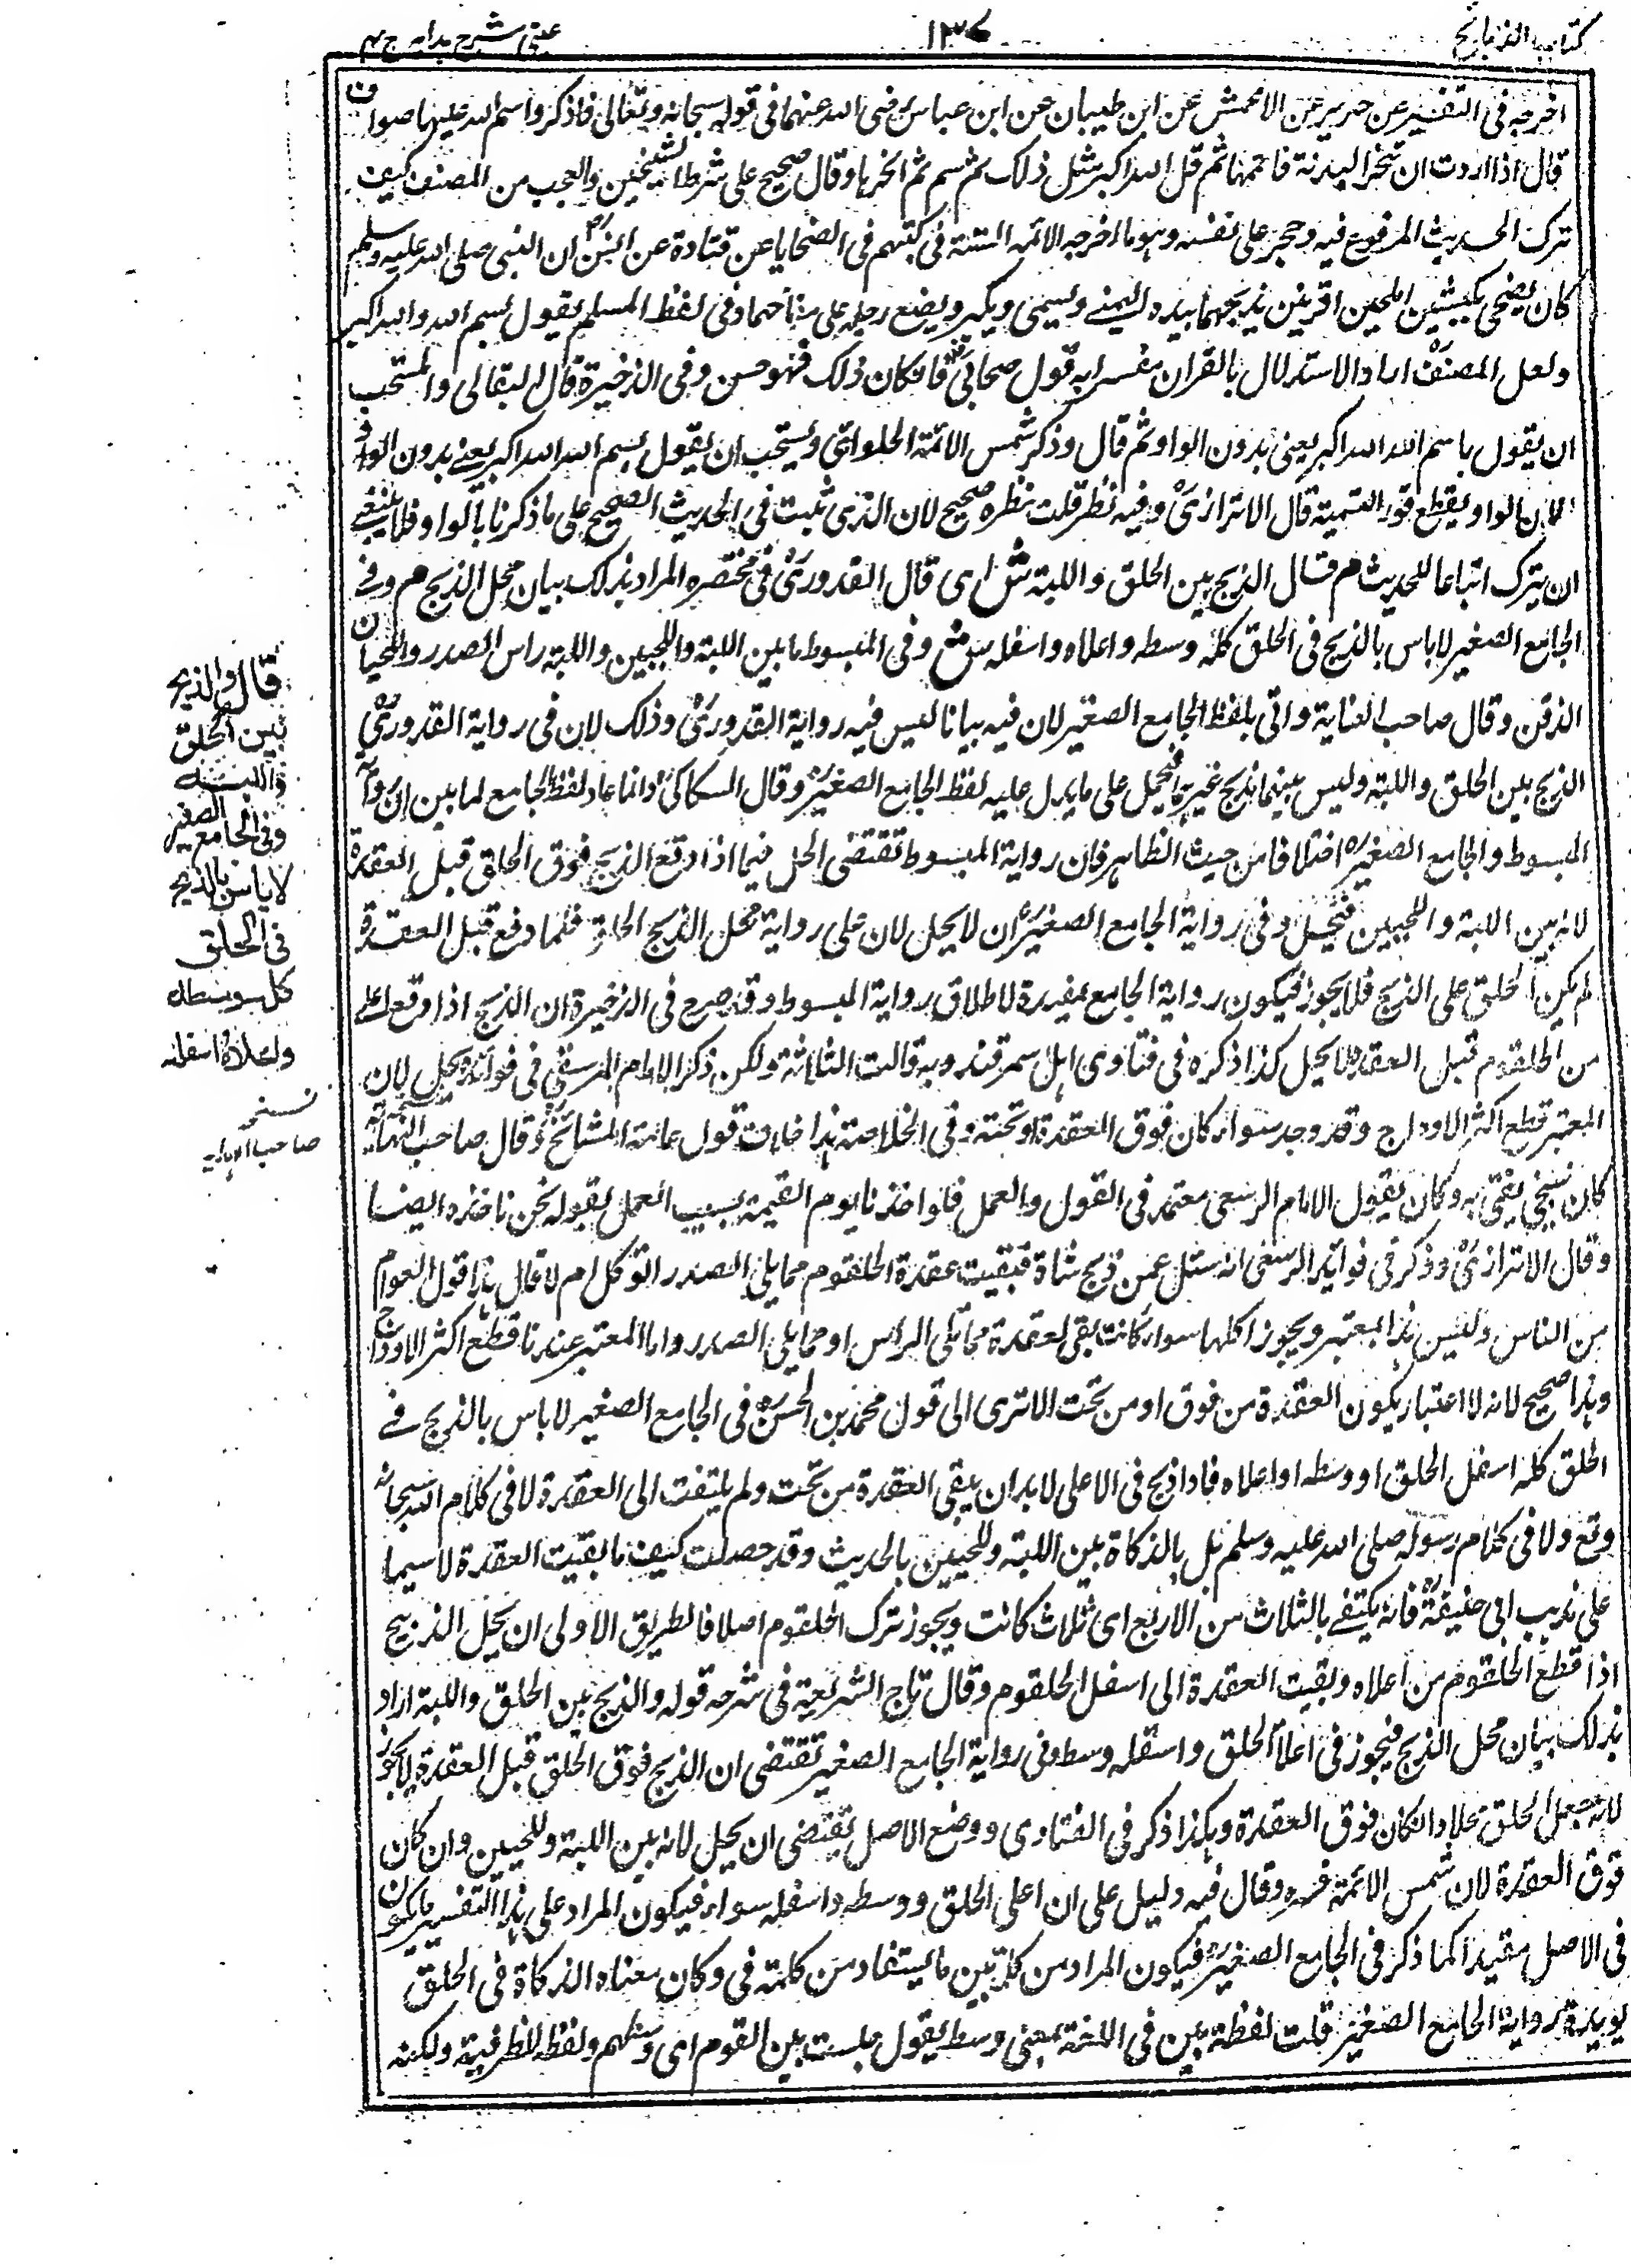 كتاب الذبائح
١٣٤
عینی شرح ہدایہ ج ٤
اخرجه فى التفسير عن جرير عن الاعمش عن ابن طيبان عن ابن عباس رضى الله عنهما فى قوله سبحانه وتعالى فاذكروا اسم الله عليها صواف
قال اذا اردت ان تنحر البدنة فاقمها ثم قل الله اكبر مثل ذلك ثم سم ثم انحرها وقال صحيح على شرط الشيخين والعجب من المصنف كيف
ترك الحديث المرفوع فيه وحجر على نفسه وهو ما اخرجه الائمه الستة فى كتبهم فى الضحايا عن قتادة عن انس ان النبى صلى الله عليه وسلم
كان يضحى بكبشين املحين اقرنين يذبحهما بيده اليمنے ويسمى ويكبر ويضع رجله على صفاحهما وفى لفظ المسلم يقول بسم الله والله اكبر
ولعل المصنف اراد الاستدلال بالقران مفسرا به قول صحابى فان كان ذلك فهو حسن وفى الذخيرة قال البقالى والمستحب
ان يقول باسم الله الله اكبر يعنى بدون الواو ثم قال وذكر شمس الائمة الحلوائى ويستحب ان يقول بسم الله الله اكبر يعنے بدون الواو
لان الواو يقطع فور التسمية قال الاترازى وفيه نظر قلت نظره صحيح لان الذى ثبت فى الحديث الصحيح على ما ذكرنا بالواو فلا ينبغے
ان يترك اتباعا للحديث م قال الذبح بين الحلق واللبة ش اى قال القدورى فى مختصره المراد بذلك بيان محل الذبح م وفے
الجامع الصغير لا باس بالذبح فى الحلق كله وسطه واعلاه واسفله ش وفى المبسوط ما بين اللبة واللحيين واللبة راس الصدر واللحيان
الذقن وقال صاحب العناية واتى بلفظ الجامع الصغير لان فيه بيانا ليس فيه رواية القدورى وذلك لان فى رواية القدورى
الذبح بين الحلق واللبة وليس بينهما مذبح غيرهما فيحمل على ما يدل عليه لفظ الجامع الصغير وقال السكاكى وانما عاد لفظ الجامع لما بين ان رواية
المبسوط والجامع الصغير اختلافا من حيث الظاهر فان رواية المبسوط تقتضى الحل فيما اذا وقع الذبح فوق الحلق قبل العقدة
لانه بين اللبة واللحيين فيحل وفى رواية الجامع الصغير ان لا يحل لان على رواية محل الذبح الحلق فلما وقع قبل العقدة
لم يكن الحلق على الذبح فلا يجوز فيكون رواية الجامع مفيدة لاطلاق رواية المبسوط وقد صرح فى الذخيرة ان الذبح اذا وقع اعلے
من الحلقوم قبل العقدة لا يحل كذا ذكره فى فتاوى اهل سمرقند وبه قالت الثلاثة ولكن ذكر الامام الرستغنى فى فوائده يحل لان
المعتبر قطع اكثر الاوداج وقد وجد سواء كان فوق العقدة او تحته وفى الخلاصة هذا خلاف قول عامة المشائخ وقال صاحب النهاية
كان شيخى يفتى به وكان يقول الامام الرستغنى معتمد فى القول والعمل فلو اخذنا يوم القيمة بسبب العمل بقوله نحن ناخذه ايضا
وقال الاترازى وذكر فى فوائد الرستغنى انه سئل عمن ذبح شاة فبقيت عقدة الحلقوم مما يلى الصدر اتوكل ام لا قال هذا قول العوام
من الناس وليس هذا المعتبر ويجوز اكلها سواء كانت بقى العقدة مما يلى الراس او مما يلى الصدر واما المعتبر عندنا قطع اكثر الاوداج
وهذا صحيح لانه لا اعتبار بكون العقدة من فوق او من تحت الا ترى الى قول محمد بن الحسن فى الجامع الصغير لا باس بالذبح فے
الحلق كله اسفل الحلق او وسطه او اعلاه فاذا ذبح فى الاعلى لابد ان يبقى العقدة من تحت ولم يلتفت الى العقدة لا فى كلام الله سبحانه
وتع ولا فى كلام رسوله صلى الله عليه وسلم بل بالذكاة بين اللبة واللحيين بالحديث وقد حصلت كيف ما بقيت العقدة لا سيما
على مذهب ابى حنيفة فانه يكتفے بالثلاث من الاربع اى ثلاث كانت ويجوز ترك الحلقوم اصلا فالطريق الاولى ان يحل الذبيح
اذا قطع الحلقوم من اعلاه وبقيت العقدة الى اسفل الحلقوم وقال تاج الشريعة فى شرحه قوله والذبح بين الحلق واللبة اراد
بذلك بيان محل الذبح فيجوز فى اعلا الحلق واسفله وسطه وفى رواية الجامع الصغير تقتضى ان الذبح فوق الحلق قبل العقدة لا يجوز
لانه جعل الحلق محلا وان كان فوق العقدة وهكذا ذكر فى الفتاوى ووضع الاصل يقتضى ان يحل لانه بين اللبة واللحيين وان كان
فوق العقدة لان شمس الائمة فسره وقال فيه دليل على ان اعلى الحلق ووسطه واسفله سواء فيكون المراد على هذا التفسير ما يكون
فى الاصل مقيدا كما ذكر فى الجامع الصغير فيكون المراد من كل بين ما يستفاد من كلمة فى وكان معناه الذكاة فى الحلق
يويده رواية الجامع الصغير قلت لفظة بين فى اللغة بمعنى وسط يقول جلست بين القوم اى وسطهم ولفظه للظرفية ولكنه
قال والذبح
بين الحلق
واللبة
وفى الجامع الصغير
لا باس بالذبح
فى الحلق
كله وسطه
واعلاه واسفله